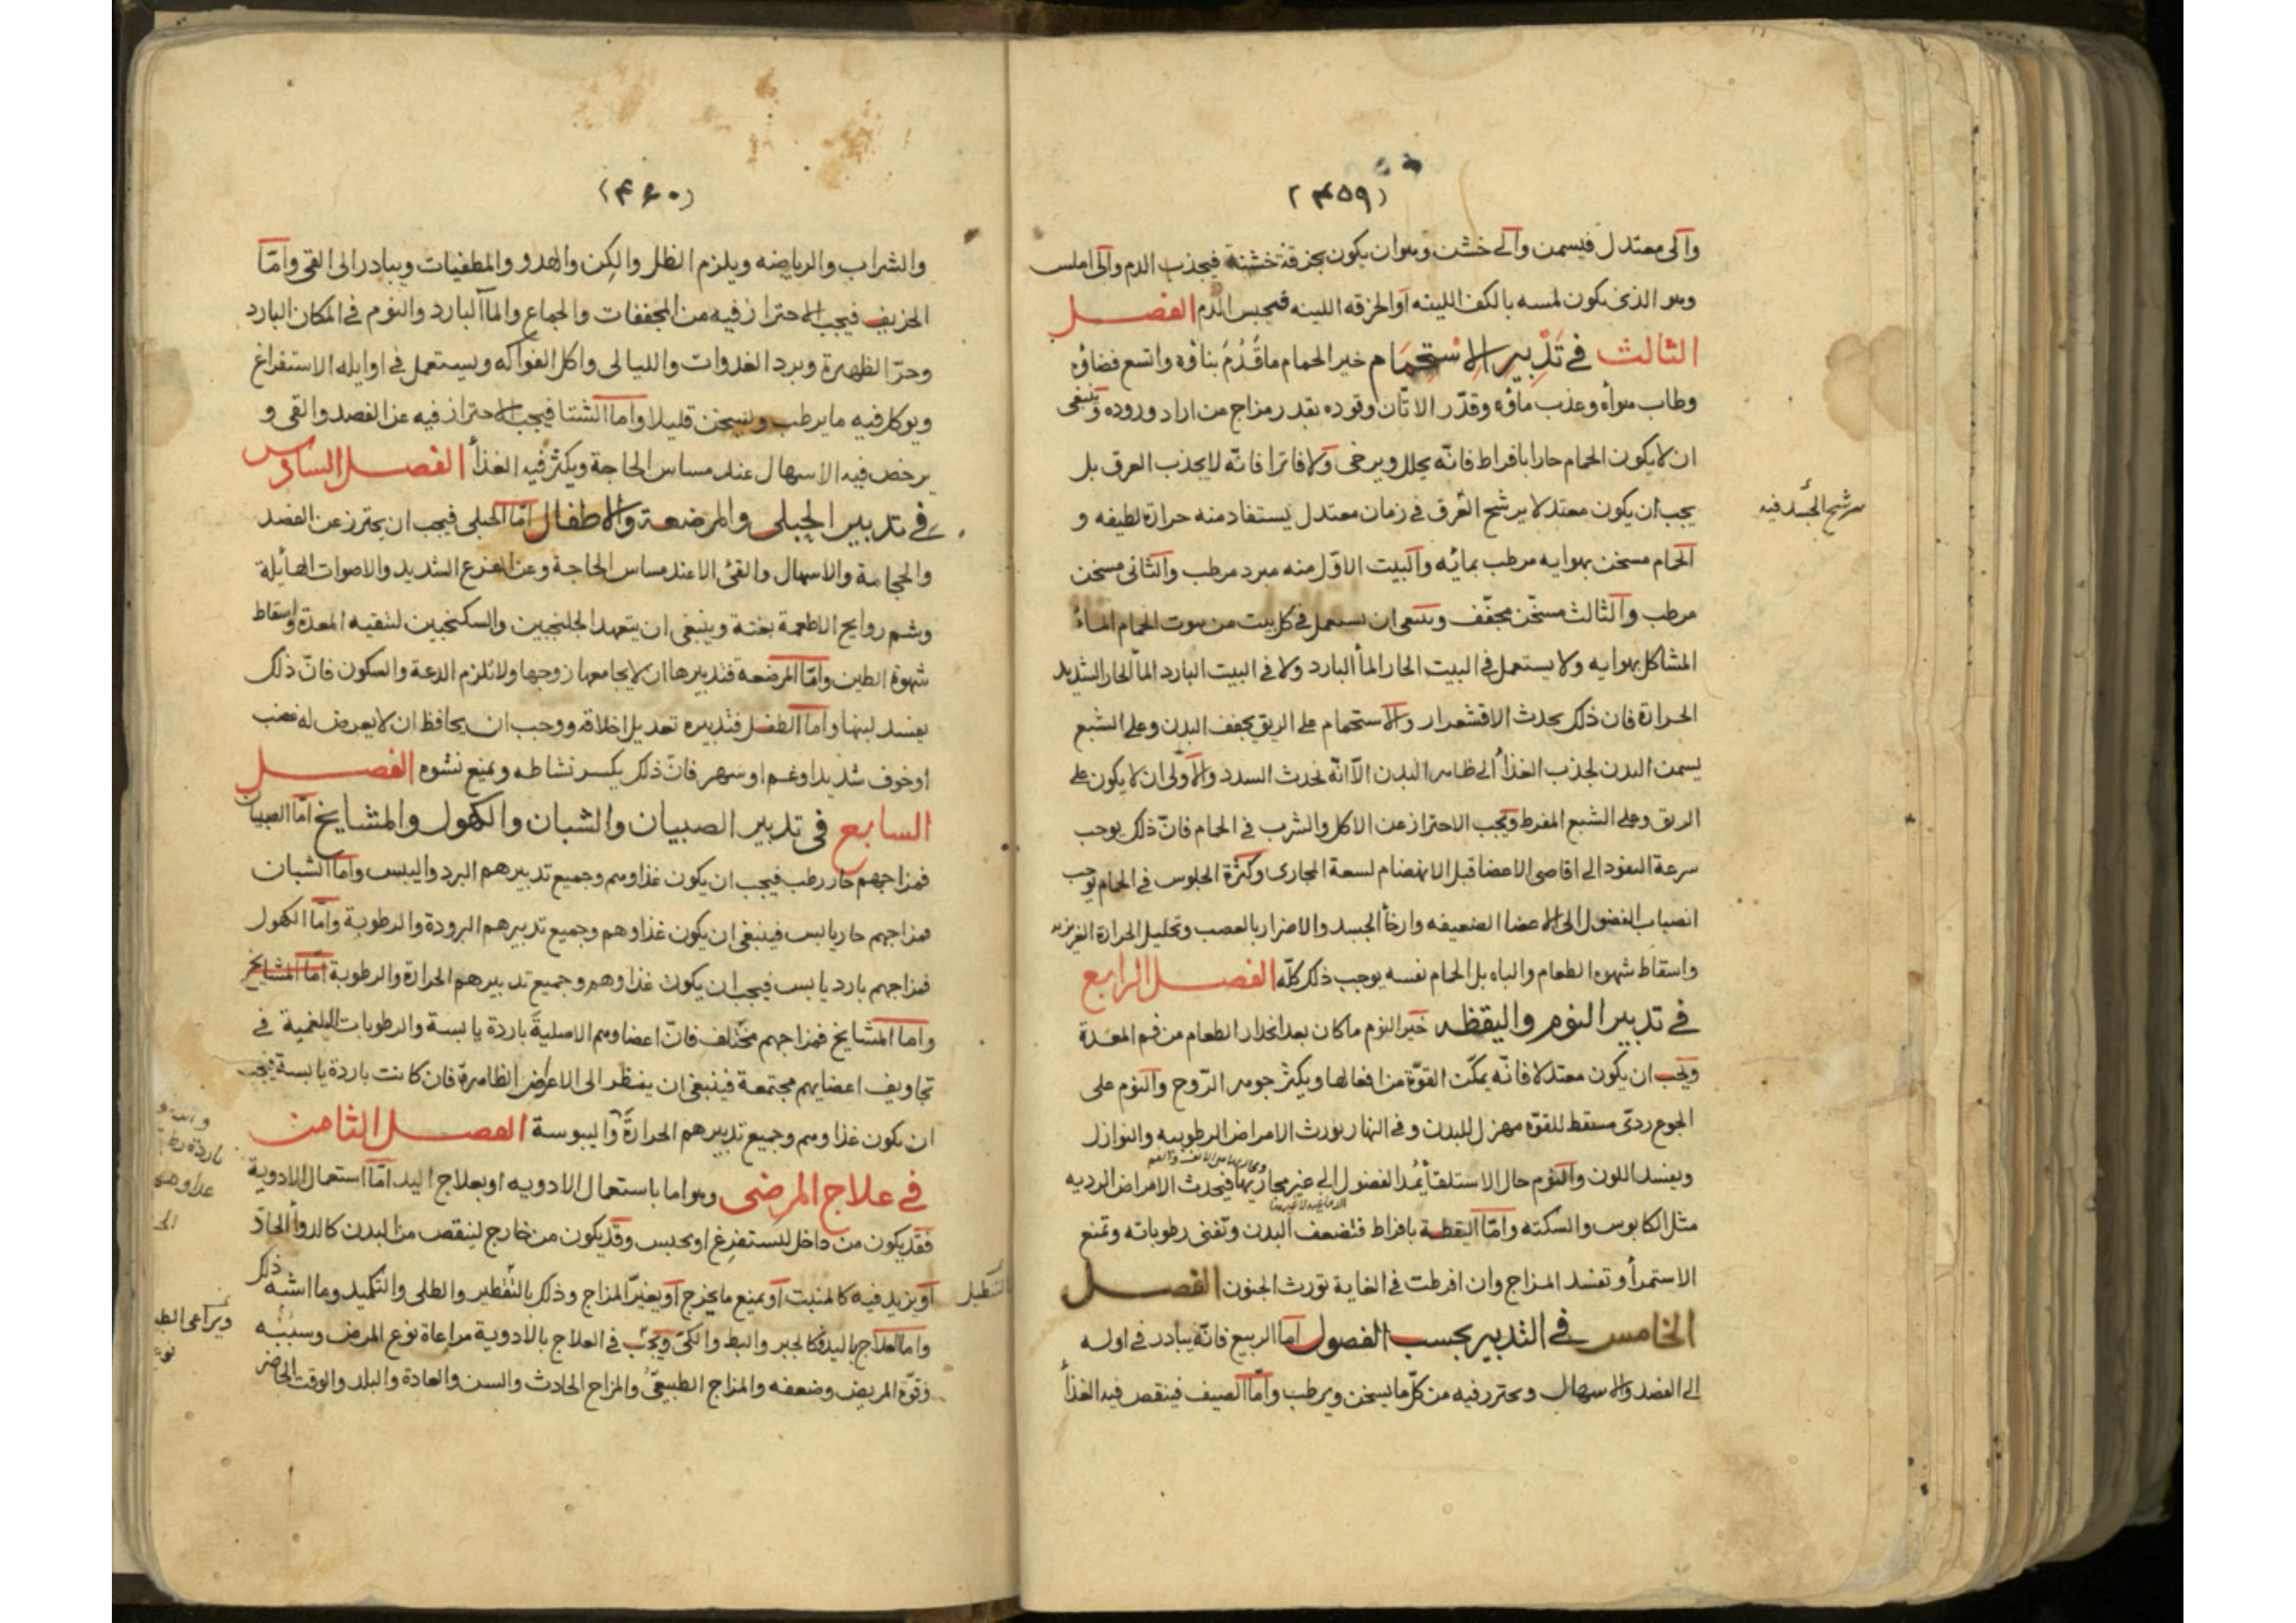 (٤٥٩)
والى معتدل فيسمن والى خشن وهوان يكون بخرقة خشنة فيجذب الدم والى املس
وهو الذى يكون لمسه بالكف اللينه أوالخرقه اللينه فيحبس الدم الفصل
الثالث فى تدبير الاستحمام خير الحمام ما قدم بناؤه واتسع فضاؤه
وطاب هواه وعذب ماؤه وقدر الاتان وقوده بقدر مزاج من اراد وروده وينبغى
ان لا يكون الحمام حارا بافراط فانّه يحلل ويرخى ولا فاترا فانّه لا يجذب العرق بل
يجب ان يكون معتدلا يرشح العرق فى زمان معتدل يستفاد منه حرارة لطيفه و
يرشح الجسد فيه
الحمام مسخن بهوايه مرطب بمائه والبيت الاوّل منه مبرد مرطب والثانى مسخن
مرطب والثالث مسخن مجفّف وينبغى ان يستعمل فى كل بيت من بيوت الحمام الماء
المشاكل بهوايه ولا يستعمل فى البيت الحار الما البارد ولا فى البيت البارد الما الحار الشديد
الحرارة فان ذلك يحدث الاقشعرار والاستحمام على الريق يجفف البدن وعلى الشبع
يسمن البدن لجذب الغذأ الى ظاهر البدن الاّ انّه يحدث السدد والاولى ان لا يكون على
الريق وعلى الشبع المفرط ويجب الاحتراز عن الاكل والشرب فى الحمام فانّ ذلك يوجب
سرعة النفود الى اقاصى الاعضا قبل الانهضام لسعة المجارى وكثرة الجلوس فى الحمام يوجب
انصباب الفضول الى الاعضا الضعيفه وارخأ الجسد والاضرار بالعصب وتحليل الحرارة الغريزيه
واسقاط شهوه الطعام والباه بل الحمام نفسه يوجب ذلك كلّه الفصل الرابع
فى تدبير النوم واليقظه خير النوم ما كان بعد انحدار الطعام من فم المعدة
ويجب ان يكون معتدلا فانّه يمكّن القوّة من افعالها ويكثر جوهر الرّوح والنوم على
الجوع ردئ مسقط للقوّه مهزل للبدن وفى النهار يورث الامراض الرطوبيه والنوازل
ويفسد اللون والنوم حال الاستلقأ يُمد الفضول الى غير مجاريها فيحدث الامراض الرديه
مثل الكابوس والسكته وامّا اليقظة بافراط فتضعف البدن وتفنى رطوباته وتمنع
الاستمرأ وتفسد المزاج وان افرطت فى الغاية تورث الجنون الفصل
الخامس فى التدبير بحسب الفصول اما الربيع فانّه يبادر فى اوله
الى الفصد والاسهال ويحترز فيه من كلّ ما يسخن ويرطب وامّا الصيف فينقص فيه الغذأ
(٤٦٠)
والشراب والرياضه ويلزم الظل والكن والهدو والمطفيات ويبادر الى القى وامّا
الخريف فيجب الاحتراز فيه من المجففات والجماع والمأ البارد والنوم فى المكان البارد
وحرّ الظهيرة وبرد الغدوات والليالى واكل الفواكه ويستعمل فى اوايله الاستفراغ
ويوكل فيه ما يرطب ويسخن قليلا واما الشتا فيجب الاحتراز فيه عن الفصد والقى و
يرخص فيه الاسهال عند مساس الحاجة ويكثر فيه الغذأ الفصل السادس
فى تدبير الحبلى والمرضعة والاطفال امّا الحبلى فيجب ان يحترز عن الفصد
والحجامة والاسهال والقئ الا عند مساس الحاجة وعن الفزع الشديد والاصوات الهائلة
وشم روايح الاطعمة بغتة وينبغى ان يتعهد الجلنجبين والسكنجبين لتنقيه المعدة واسقاط
شهوة الطين وامّا المرضعة فتدبيرها ان لا يجامعها زوجها ولا تلزم الدعة والسكون فانّ ذلك
يفسد لبنها واما الطفل فتدبيره تعديل اخلاقه ووجب ان يحافظ ان لا يعرض له غضب
اوخوف شديد اوغم اوسهر فانّ ذلك يكسر نشاطه ويمنع نشوه الفصل
السابع فى تدبير الصبيان والشبان والكهول والمشايخ امّا الصبيان
فمزاجهم حار رطب فيجب ان يكون غذاوهم وجميع تدبيرهم البرد واليبس واما الشبان
فمزاجهم حار يابس فينبغى ان يكون غذاوهم وجميع تدبيرهم البرودة والرطوبة وامّا الكهول
فمزاجهم بارد يابس فيجب ان يكون غذاوهم وجميع تدبيرهم الحرارة والرطوبة امّا المشايخ
واما المشايخ فمزاجهم مختلف فانّ اعضاوهم الاصلية باردة يابسة والرطوبات البلغمية فى
تجاويف اعضايهم مجتمعة فينبغى ان ينظر الى الاعراض الظاهرة فان كانت باردة يابسة فيجب
ان يكون غذاوهم وجميع تدبيرهم الحرارة واليبوسة الفصل الثامن
باردة رطبة
غداوهم
فى علاج المرضى وهو اما باستعمال الادويه اوبعلاج اليد امّا استعمال الادوية
فقد يكون من داخل ليستفرغ اويحبس وقد يكون من خارج لينقص من البدن كالدوأ الحادّ
أويزيد فيه كالمنبت أويمنع ما يخرج أويغيّر المزاج وذلك بالتقطير والطلى والتكميد وما اشبه ذلك
واما العلاج باليد فكالجبر والبط والكى ويجب فى العلاج بالادوية مراعاة نوع المرض وسببه
ويراعى
وقوّة المريض وضعفه والمزاج الطبيعىّ والمزاج الحادث والسن والعادة والبلد والوقت الحاضر